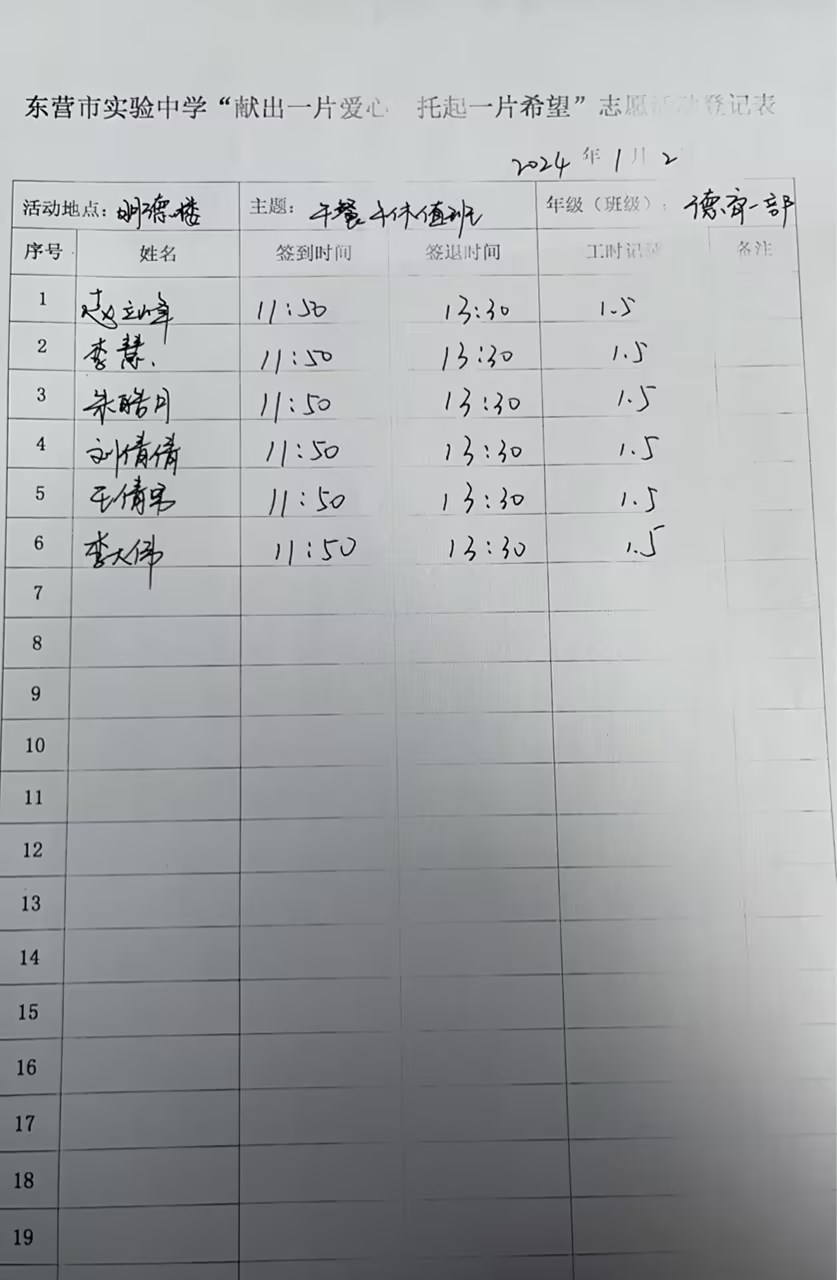 东营市实验中学“献出一片爱心 托起一片希望”志愿活动登记表
2024 年 1 月 2
活动地点：明德楼 主题：午餐午休值班 年级（班级）：德育一部
序号 姓名 签到时间 签退时间 工时记录 备注
1 赵立峰 11:50 13:30 1.5
2 李慧. 11:50 13:30 1.5
3 朱皓月 11:50 13:30 1.5
4 刘倩倩 11:50 13:30 1.5
5 王倩 11:50 13:30 1.5
6 李大伟 11:50 13:30 1.5
7
8
9
10
11
12
13
14
15
16
17
18
19